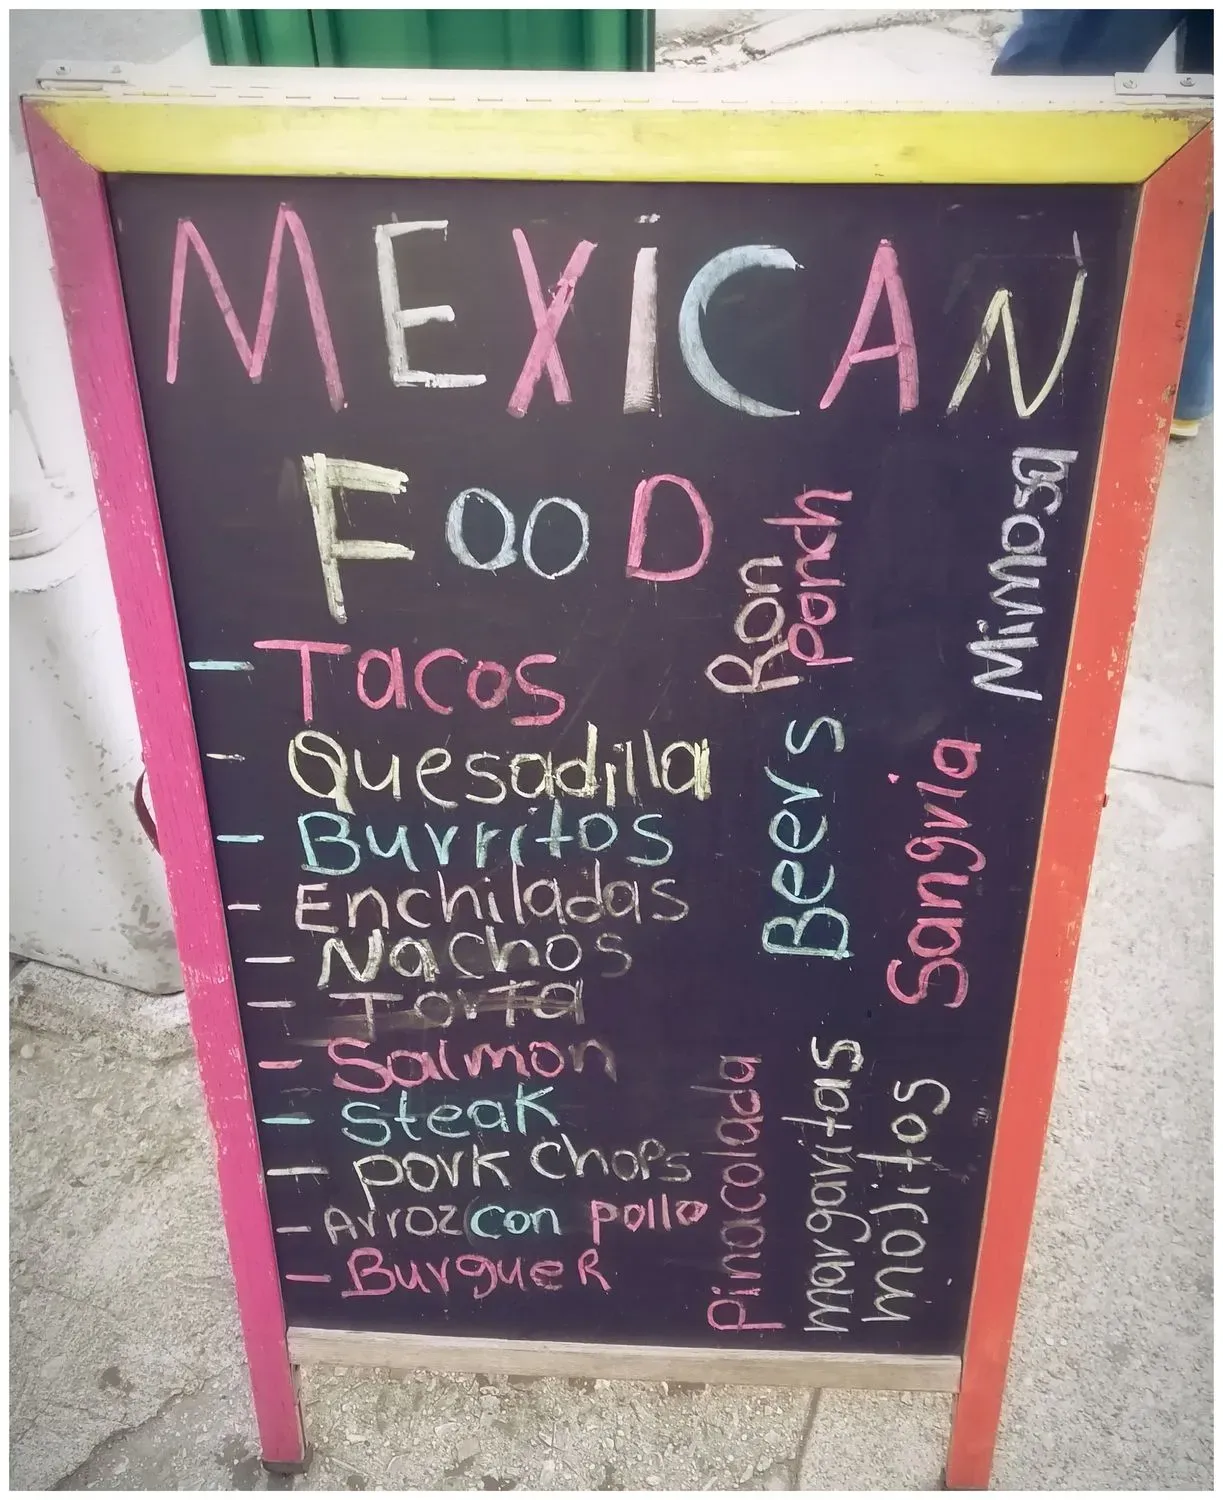 MEXiCAN
FOOD
- Tacos
- Quesadilla
- Burritos
- Enchiladas
- Nachos
- Torta
- Salmon
- steak
- pork chops
- Arroz con pollo
- BurgueR
Ron
ponch
Mimosa
Beers
Sangria
Pinacolada
margaritas
mojitos